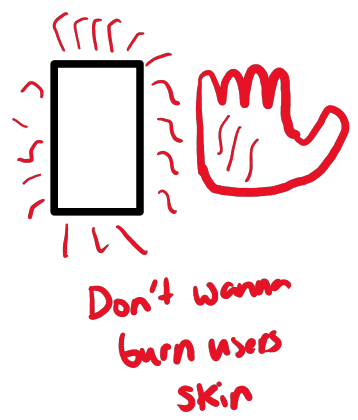 Don't wanna
burn users
skin